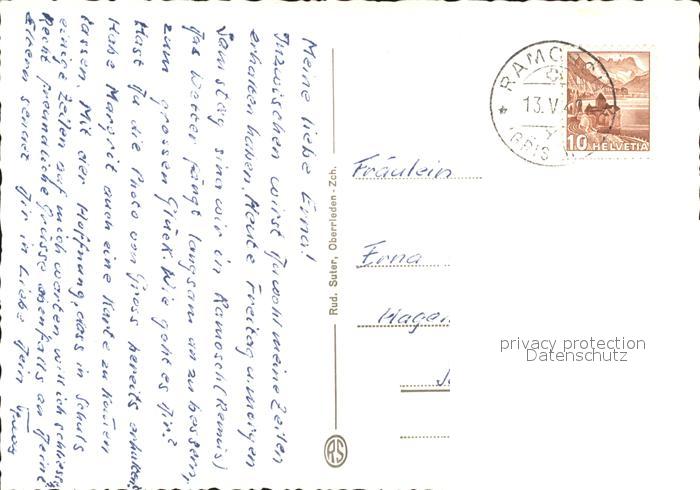 Meine liebe Erna!
Inzwischen wirst Du wohl meine Zeilen
erhalten haben. Heute Freitag u. morgen
Samstag sind wir in Ramosch (Remüs)
Das Wetter fängt langsam an zu bessern,
zum grossen Glück. Wie geht es Dir?
Hast Du die Photo von Gross bereits erhalten?
Habe Margrit auch eine Karte zukommen
lassen. Mit der Hoffnung, dass in Schuls
einige Zeilen auf mich warten will ich schliessen
Recht freundliche Grüsse ebenfalls an Deine
Eltern sendet Dir in Liebe Dein
Rud. Suter, Oberrieden-Zch.
RS
Fräulein
Erna
Hagen
RAMOSCH
13. V. 4
10 HELVETIA
privacy protection
Datenschutz